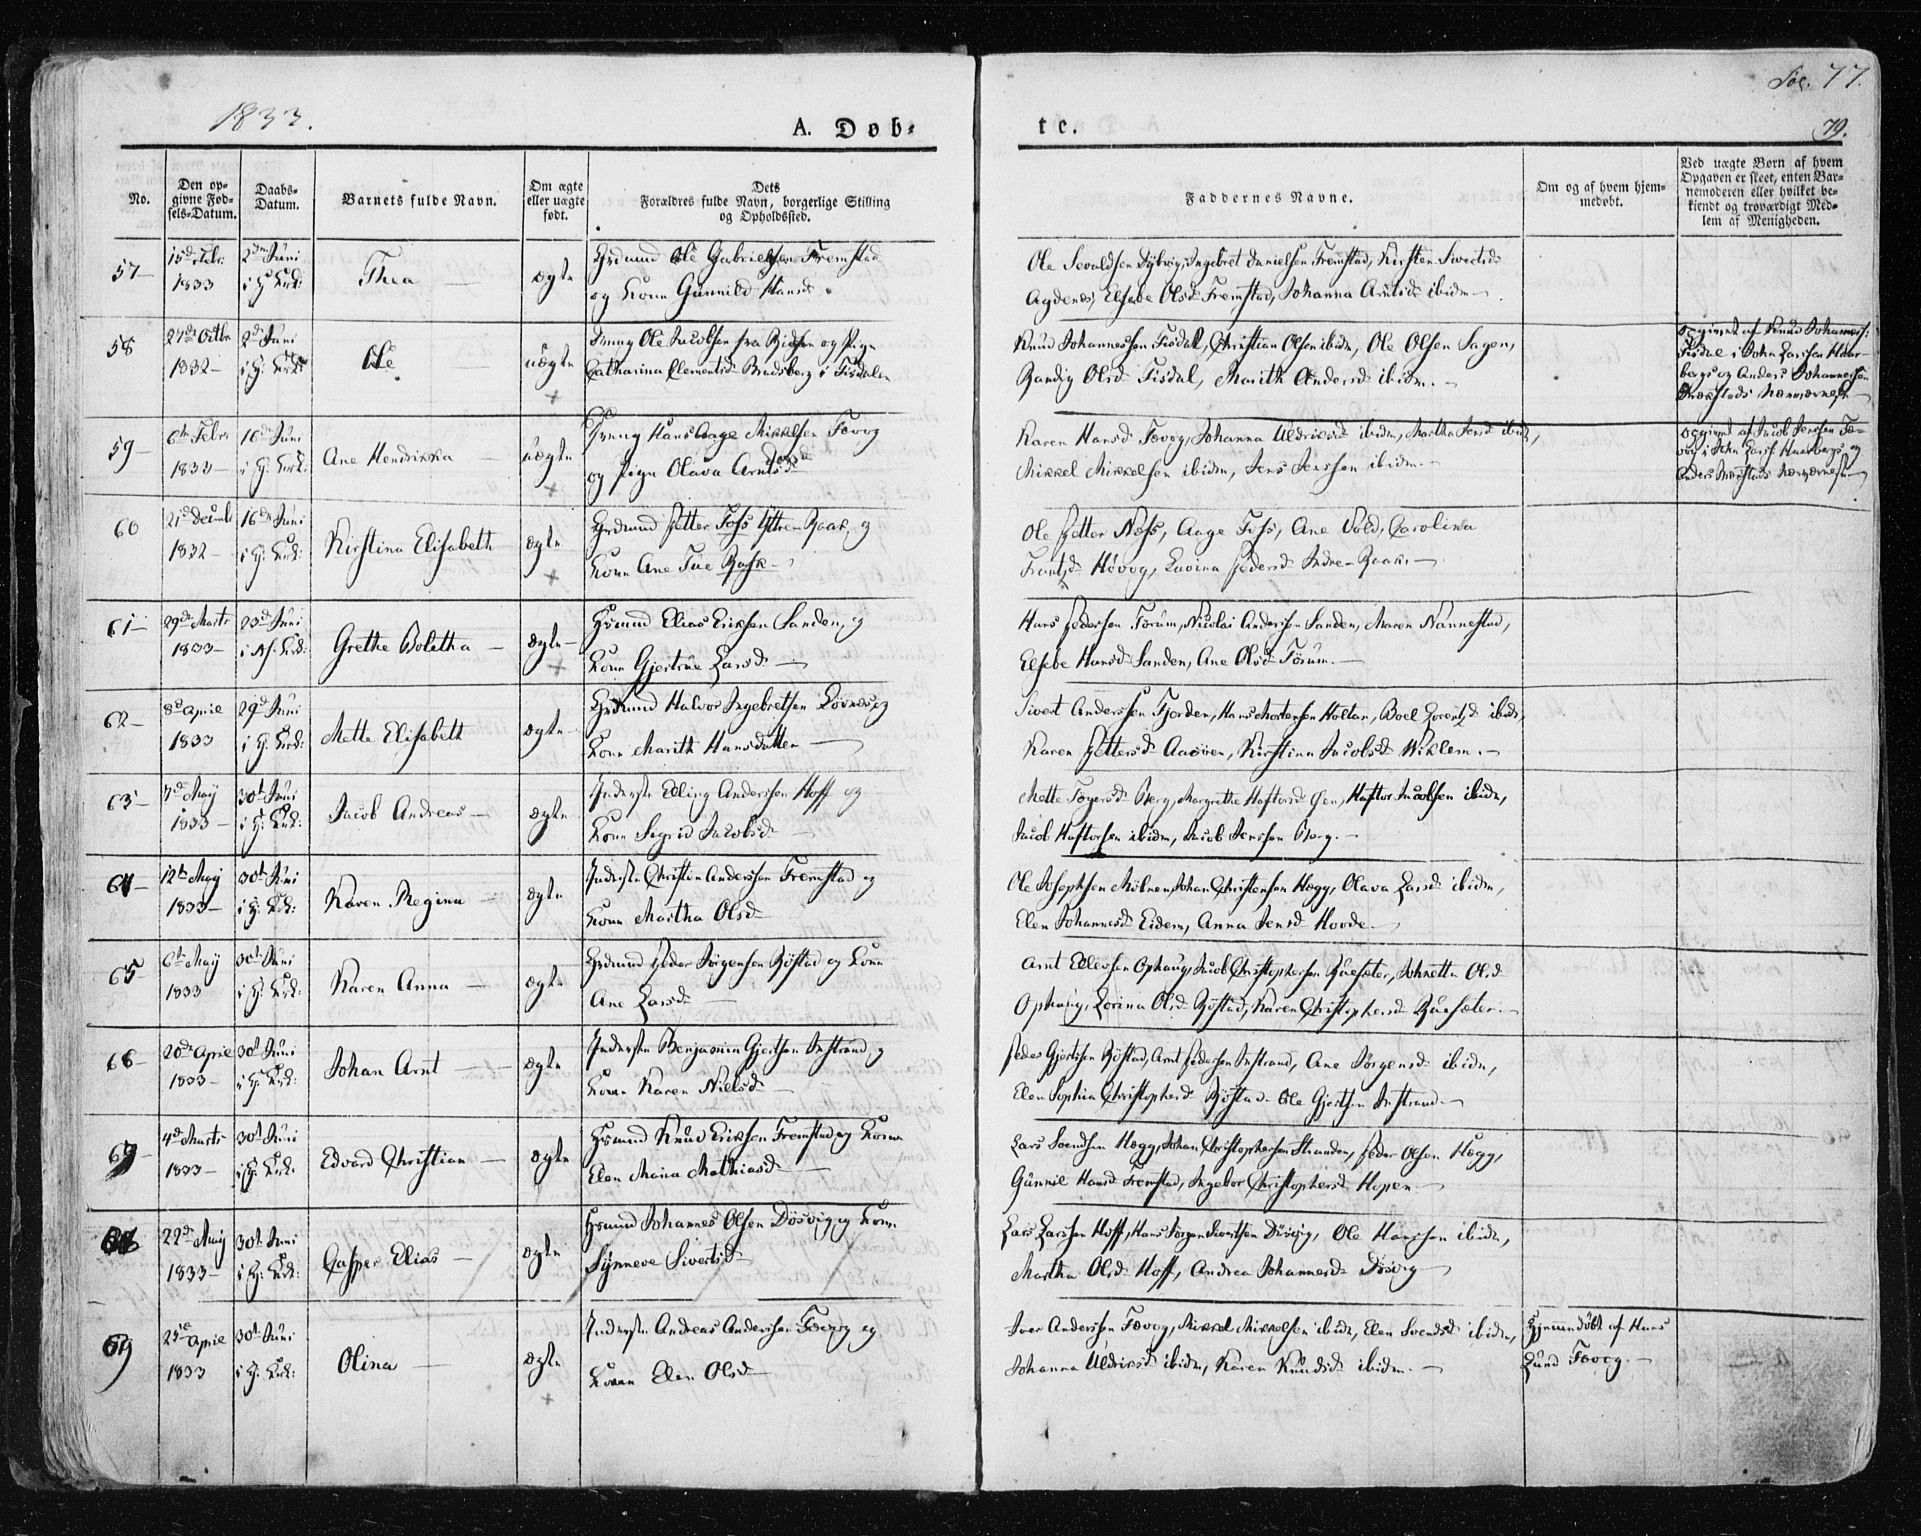 Fol. 77.
1833.
A. Døb-
te.
79.
No.
Den op-
givne Fød-
sels-Datum.
Daabs-
Datum.
Barnets fulde Navn.
Om ægte
eller uægte
født.
Dets
Forældres fulde Navn, borgerlige Stilling
og Opholdssted.
Faddernes Navne.
Om og af hvem hjem-
medøbt.
Ved uægte Børn af hvem
Opgaven er skeet, enten Bar-
nemoderen eller hvilket be-
kiendt og troværdigt Med-
lem af Menigheden.
57-
15de Febr.
1833
2den Juni
i H. Kirk:
Thea
ægte
Grdmd Ole Gabrielsen Fremstad
og Kone Gunnild Hansd
Ole Sevaldsen Dybvig, Ingebret Danielsen Fremstad, Kirsten Sivertsd
Agdenes, Elsebe Olsd Fremstad, Johanna Arntsd ibidm
58
27de Octbr
1832-
2den Juni
i H. Kirk:
Ole
uægte
Ole Jacobsen fra og Pige
Catharina Clementsd Bradsberg i Tisdalen
Knud Johannessen Tisdal, Christian Olsen ibidm, Ole Olsen Sagen,
Randig Olsd Tisdal, Marith Andersd ibidm.
Opgivet af Knud Johanness:
Tisdal i John Larsen Haar-
bergs og Anders Johannessen
Nærværelse
59-
6te Febr
1833-
16de Juni
i H. Kirk:
Ane Hendrikka
uægte
Ungk Hans Aage Mikkelsen Fævog
og Pige Olava Arntsd
Karen Hansd Fævog, Johanna Uldriksd ibidm, Martha Jensd ibidm,
Mikkel Mikkelsen ibidm, Jens Jenssen ibidm.
Opgivet af Jacob Jenssen Fæ-
vog i John Larss Haarbergs og
Anders Nærværelse
60
21de Decemb
1832-
16de Juni
i H. Kirk:
Kirstina Elisabeth
ægte
Grdmd Petter Foss Yttre-Raak, og
Kone Ane Tue Rask
Ole Petter Næss, Aage Foss, Ane Vold, Carolina
Frantzd Høvog, Lavina Pedersd Indre-Raak
61-
29de Marts
1833-
23de Juni
i Nf. Kirk:
Grethe Boletha
ægte
Hsmd Elias Eriksen Sanden, og
Kone Gjertrue Larsd
Hans Pedersen Forum, Nicolai Anderssen Sanden, Maren Nannestad,
Elsebe Hansd Sanden, Ane Olsd Forum.
62-
8de April
1833
29de Juni
i H. Kirk:
Mette Elisabeth
ægte
Grdmd Halvor Ingebretsen Løvnes og
Kone Marith Hansdatter
Sivert Anderssen Fjorden, Hans Mortensen Holtan, Boel Lorentzd ibidm,
Karen Pettersd Aasven, Kirstine Jacobsd Viklem.
63-
7de May
1833-
30te Juni
i H. Kirk:
Jacob Andreas
ægte
Inderste Elling Anderssen Hoff og
Kone Sigrid Jacobsd
Mette Aagesd Berg, Margrethe Haftorsd Øen, Haftor Jacobsen ibidm,
Jacob Haftorsen ibidm, Jacob Jenssen Berg.
64-
12te May
1833-
30te Juni
i H. Kirk:
Karen Regina
ægte
Inderste Christen Anderssen Fremstad og
Kone Martha Olsd
Ole Josephsen Mølnen, Johan Christensen Hegg, Olava Larsd ibidm,
Elen Johannesd Eidem, Anna Jensd Hovde
65-
6te May
1833
30te Juni
i H. Kirk:
Karen Anna
ægte
Grdmd Peder Jørgensen Røstad og Kone
Ane Larsd
Arnt Ellevsen Ophaug, Jacob Christophersen Ruesæter, Johnetta Olsd
Ophaug, Lorina Olsd Røstad, Karen Christophersd Ruesæter.
66-
20de April
1833-
30te Juni
i H. Kirk:
Johan Arnt
ægte
Inderste Benjamin Gjertsen Instrand og
Kone Karen Nielsd
Peder Gjertsen Røstad, Arnt Pedersen Instrand, Ane Jørgensd ibidm,
Elen Sophia Christophersd Røstad, Ole Gjertsen Instrand
4de Marts
1833-
30te Juni
i H. Kirk:
Edvard Christian
ægte
Hsmd Knud Eriksen Fremstad og Kone
Elen Maria Mathiasd
Lars Svendsen Hegg, Johan Christophersen Stranden, Peder Olsen Hegg,
Gunnil Hansd Fremstad, Ingebor Christophersd Hopen
68
22de May
1833-
30te Juni
i H. Kirk:
Casper Elias
ægte
Hsmd Johannes Olsen Døsvig, og Kone
Synneve Sivertsd
Lars Larssen Hoff, Hans Jørgen Sivertsen Døsvig, Ole Hanssen ibidm,
Martha Olsd Hoff, Andrea Johannesd Døsvig
69
25de April
1833
30te Juni
i H. Kirk:
Olina
ægte
Inderste Andreas Anderssen Fævog og
Kone Elen Olsd
Iver Anderssen Fævog, Mikkel Mikkelsen ibidm, Elen Svendsd ibidm,
Johanna Uldriksd ibidm, Karen Knudsd ibidm.
Hjemmedøbt af Hans
Lund Fævog.